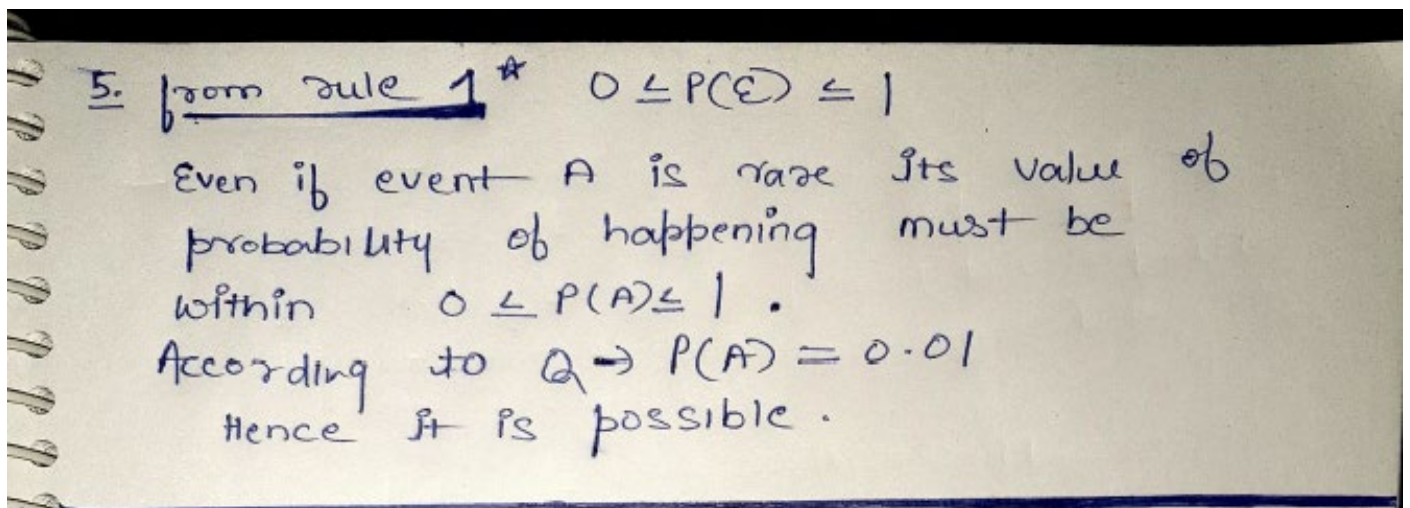 5. from rule 1* 0 ≤ P(E) ≤ 1
Even if event A is rare its value of
probability of happening must be
within 0 ≤ P(A) ≤ 1 .
According to Q → P(A) = 0.01
Hence it is possible .